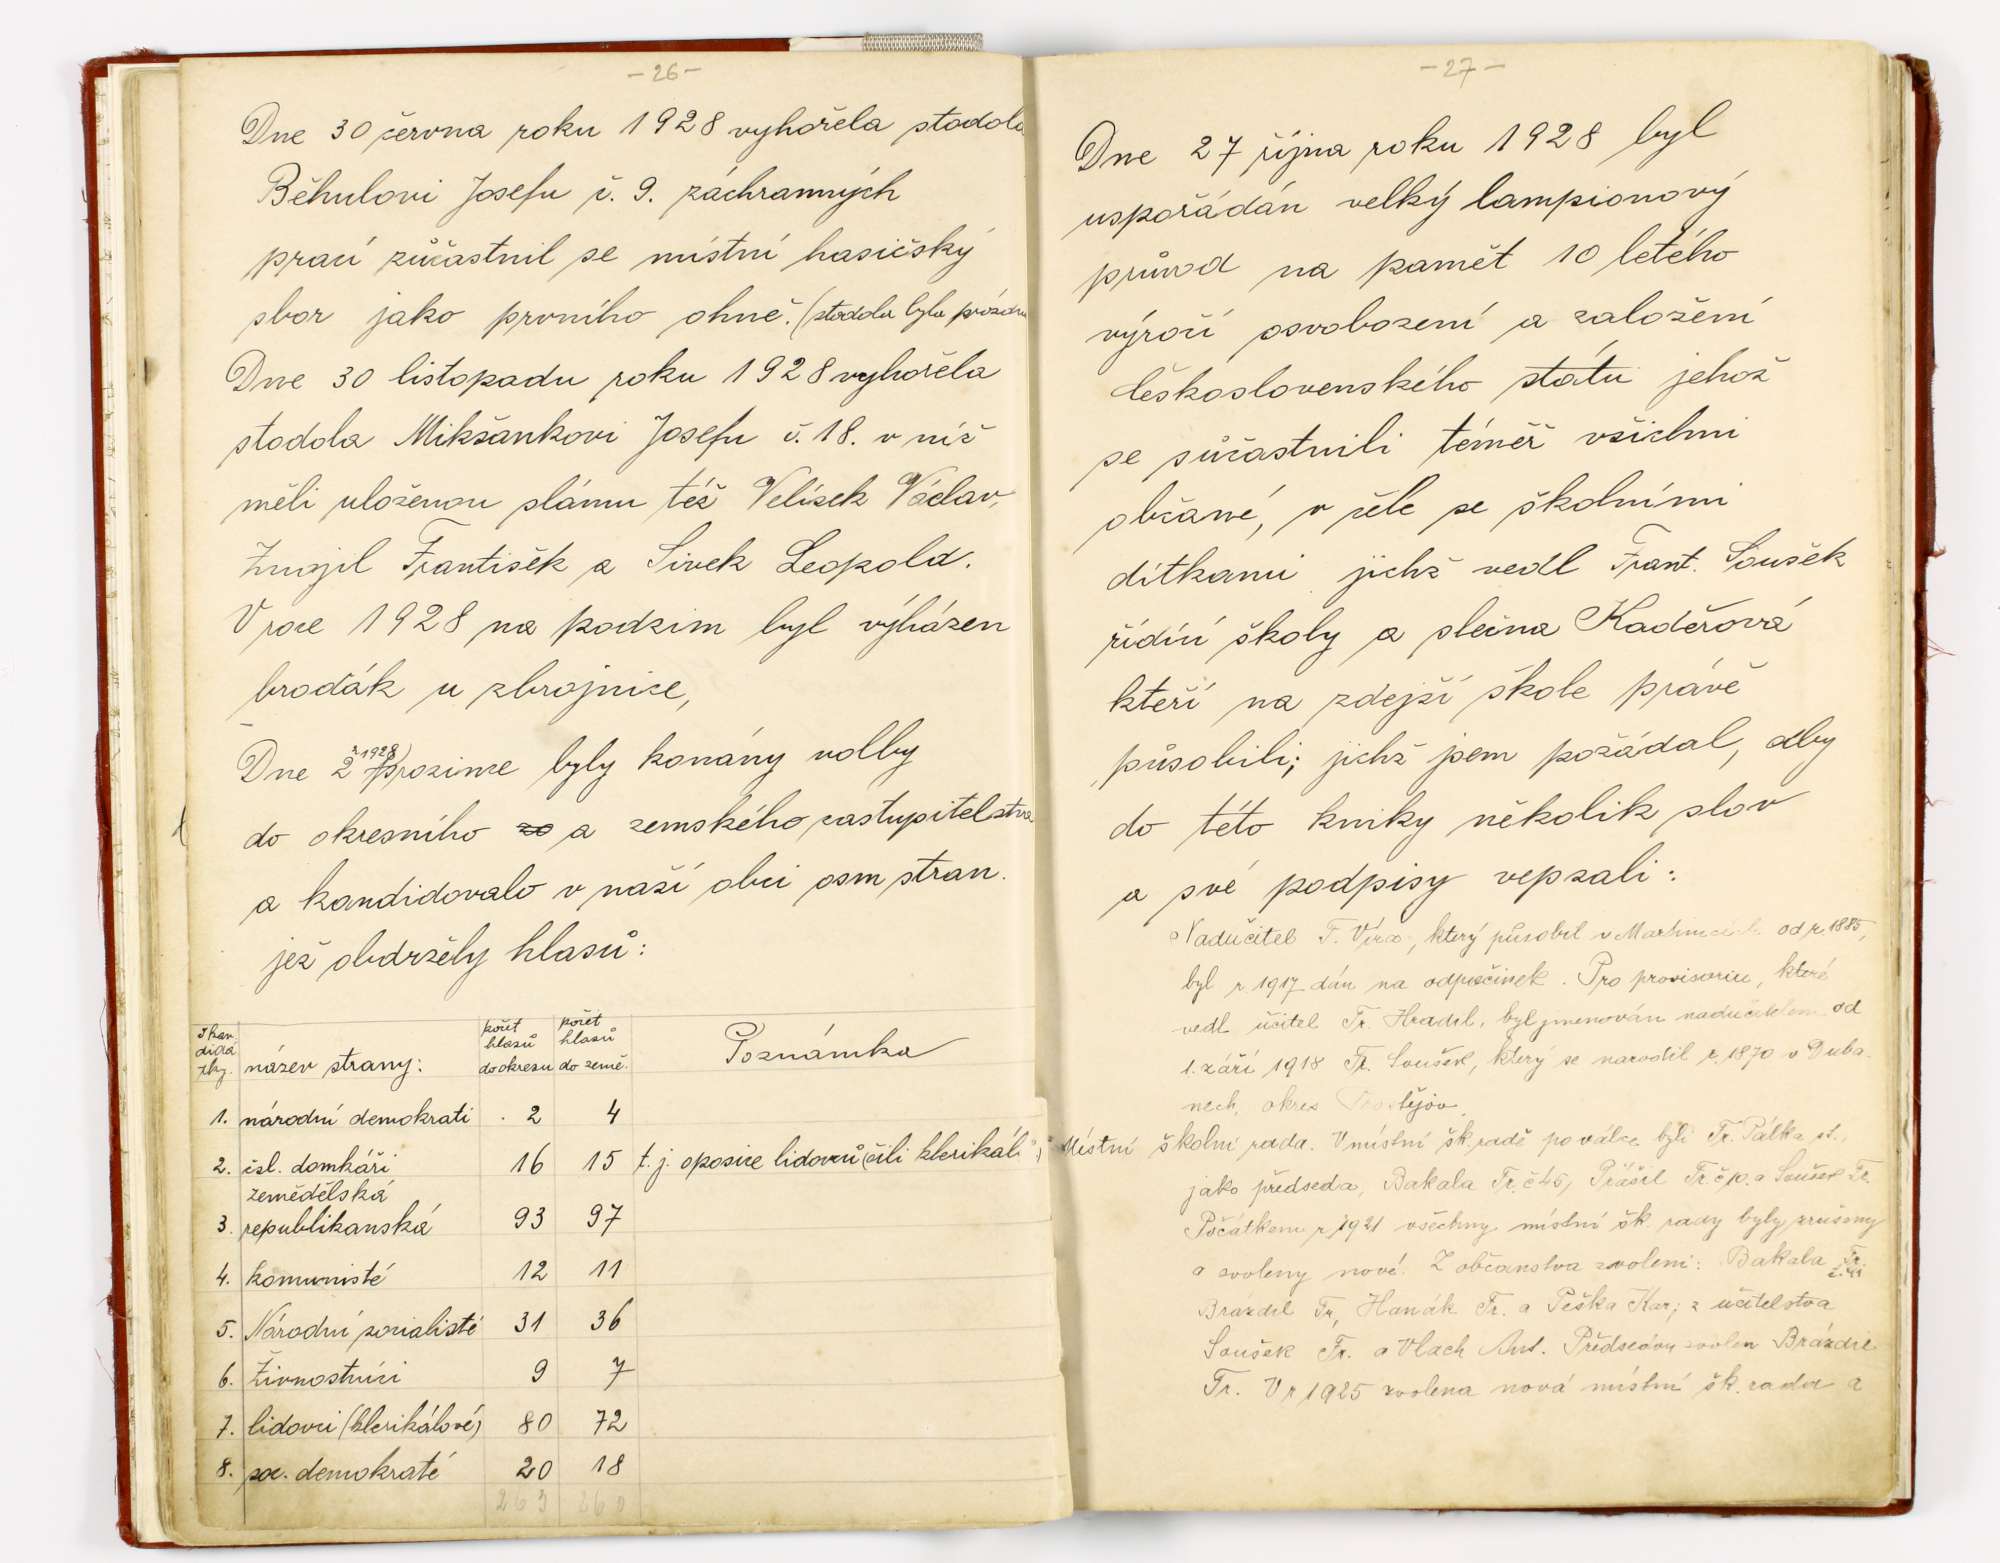 - 26 -
Dne 30 června roku 1928 vyhořela stodola
Běhulovi Josefu č. 9. záchranných
prací zúčastnil se místní hasičský
sbor jako prvního ohně. (stodola byla prázdna
Dne 30 listopadu roku 1928 vyhořela
stodola Mikšankovi Josefu č. 18. v níž
měli uloženou slámu též Velísek Václav,
Zmojil František a Sivek Leopold.
V roce 1928 na podzim byl výházen
broďák u zbrojnice,
Dne 2 prosince r 1928) byly konány volby
do okresního a zemského zastupitelstva
a kandidovalo v naší obci osm stran.
jež obdržely hlasů:
Kandidátky. název strany: počet hlasů do okresu počet hlasů do země. Poznámka
1. národní demokrati 2 4
2. čsl. domkáři 16 15 t. j. oposice lidovců (čili klerikálů)
3. zemědělská republikanská 93 97
4. komunisté 12 11
5. Národní socialisté 31 36
6. Živnostníci 9 7
7. lidovci (klerikálové) 80 72
8. soc. demokraté 20 18
263 260
- 27 -
Dne 27 října roku 1928 byl
uspořádán velký lampionový
průvod na pamět 10 letého
výročí osvobození a založení
československého státu jehož
se súčastnili téměř všichni
občané, v čele se školními
dítkami jichž vedl Frant. Soušek
řídící školy a slečna Kadeřová
kteří na zdejší škole právě
působili; jichž jsem požádal, aby
do této kniky několik slov
a své podpisy vepsali:
Nadučitel F. Víra, který působil v Martinicích od r. 1885,
byl r. 1917 dán na odpočinek. Pro provisorium, které
vedl učitel Fr. Hradil, byl jmenován nadučitelem od
1. září 1918 Fr. Soušek, který se narodil r. 1870 v Duba-
nech, okres Prostějov.
Místní školní rada. V místní šk. radě po válce byli Fr. Pálka st.,
jako předseda, Bakala Fr. č 45, Prášil Fr. č 10. a Soušek Fr.
Počátkem r. 1921 všechny místní šk. rady byly zrušeny
a zvoleny nové. Z občanstva zvoleni: Bakala Fr.
Brázdil Fr., Hanák Fr. a Peška Kar.; z učitelstva
Soušek Fr. a Vlach Ant. Předsedou zvolen Brázdil
Fr. V r 1925 zvolena nová místní šk. rada a